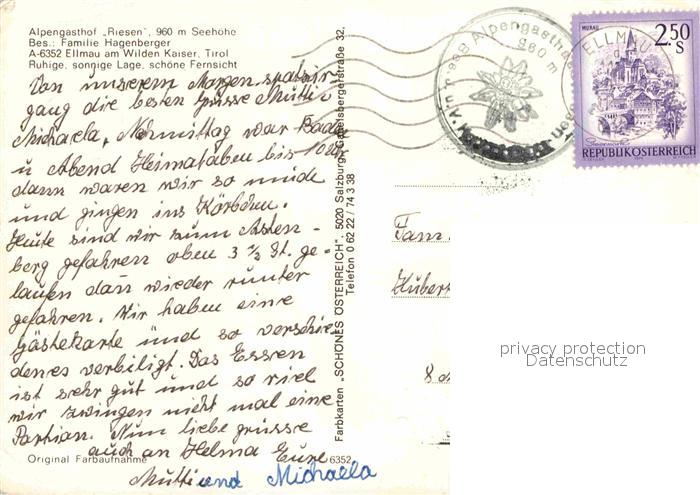 Alpengasthof „Riesen", 960 m Seehöhe
Bes.: Familie Hagenberger
A-6352 Ellmau am Wilden Kaiser, Tirol
Ruhige, sonnige Lage, schöne Fernsicht
Von unserem Morgen spazier
gang die besten Grüsse Mutti
Michaela, Nachmittag war Baden
u Abend Heimataben bis 10 Uhr
dann waren wir so müde
und gingen ins Körbchen.
Heute sind wir zum Asten-
berg gefahren oben 3 ½ St. ge-
laufen dan wieder runter
gefahren. Wir haben eine
Gästekarte und so verschie
denes verbiligt. Das Essen
ist sehr gut und so viel
wir zwingen nicht mal eine
Partian. Nun liebe grüsse
auch an Helma Eure
Mutti und Michaela
Original Farbaufnahme
6352
Farbkarten „SCHÖNES ÖSTERREICH", 5020 Salzburg, Gabelsbergerstraße 32,
Telefon 0 62 22 / 74 3 38
Alpengasthof
960 m
ELLMAU
MURAU
2.50 S
REPUBLIK ÖSTERREICH
Fam.
Hubert
privacy protection
Datenschutz